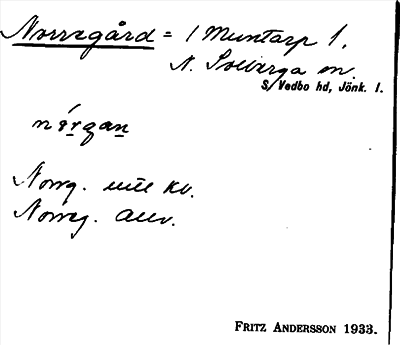 Norregård = 1 Muntarp 1.
N. Solberga sn.
S. Vedbo hd, Jönk. l.
Norreg. uttt kv.
Norreg. allm.
FRITZ ANDERSSON 1933.